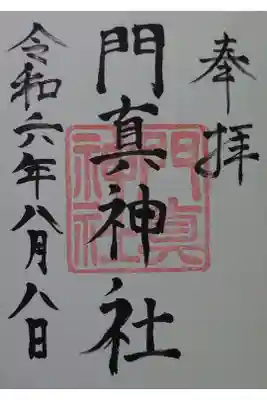 奉拝
門真神社
令和六年八月八日
門真
神社